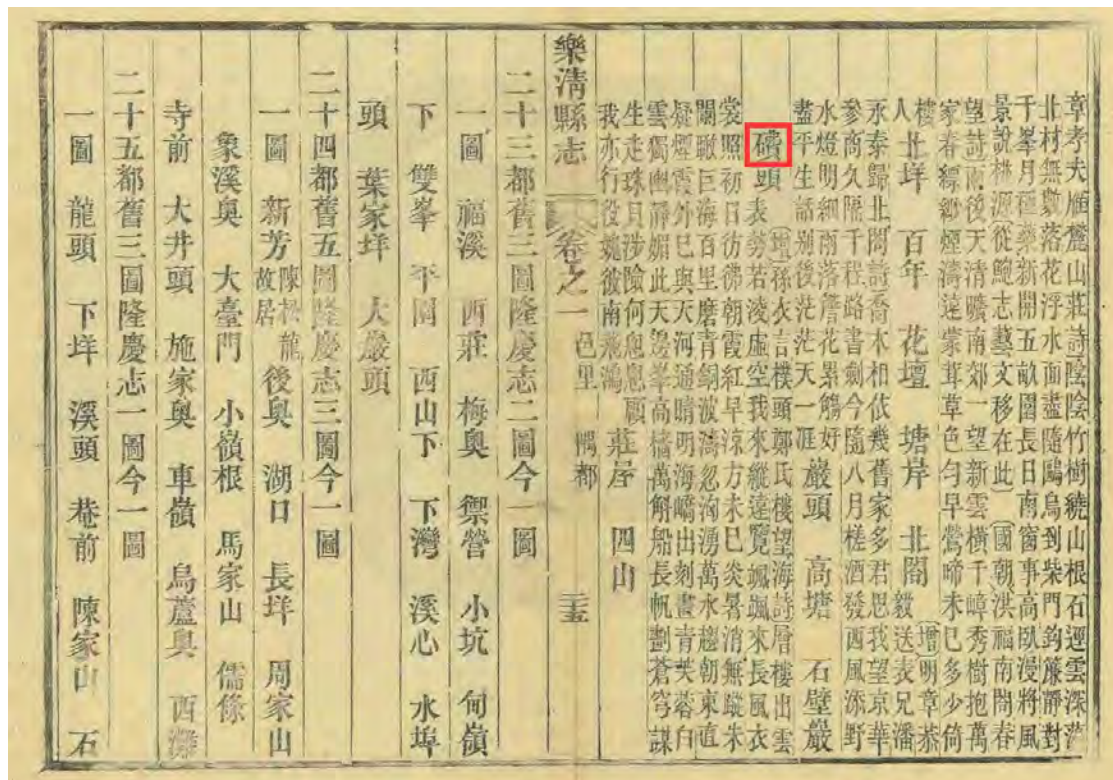 章孝夫雁麓山莊詩陰陰竹樹繞山根石逕雲深
北村無數落花浮水面盡隨鷗鳥到柴門鈎簾靜對
千峯月種藥新開五畝園長日南窗事高臥漫將風
景說桃源從鮑志藝文移在此國朝洪福南閣春
望詩雨後天清曠南郊一望新雲橫千嶂秀樹抱萬
家春縹緲煙濤遠蒙茸草色勻早鶯啼未已多少倚
樓人 北垟 百年 花壇 塘岸 北閣 增明章恭毅送表兄潘
永泰歸北閣詩喬木相依幾舊家多君思我望京華
參商久隔千程路書劍今隨八月槎酒發西風添野
水燈明細雨落簷花累觴好
盡平生話別後茫茫天一涯 巖頭 高塘 石壁巖
礩頭 增孫衣言樸頭鄭氏樓望海詩層樓出雲
表勢若淩虛空我來縱遠覽颯颯來長風衣
裳照初日彷彿朝霞紅早涼方未已炎暑消無蹤朱
闌瞰巨海百里磨青銅波濤忽洶湧萬水趨朝東直
疑煙霞外已與天河通晴明海嶠出刻畫青芙蓉白
雲獨幽靜媚此天邊峯高檣萬斛船長帆劃蒼穹謀
生走珠貝涉險何怱怱顧
我亦行役媿彼南飛鴻 莊屋 四山
樂清縣志 卷之一 邑里 隅都 三五
二十三都舊三圖隆慶志二圖今一圖
一圖 福溪 西莊 梅奧 禦營 小坑 甸嶺
下 雙峯 平園 西山下 下灣 溪心 水埠
頭 葉家垟 大巖頭
二十四都舊五圖隆慶志三圖今一圖
一圖 新芳陳松龍故居 後奧 湖口 長垟 周家山
象溪奧 大臺門 小嶺根 馬家山 儒條
寺前 大井頭 施家奧 車嶺 烏蘆奧 西灘
二十五都舊三圖隆慶志一圖今一圖
一圖 龍頭 下垟 溪頭 巷前 陳家山 石